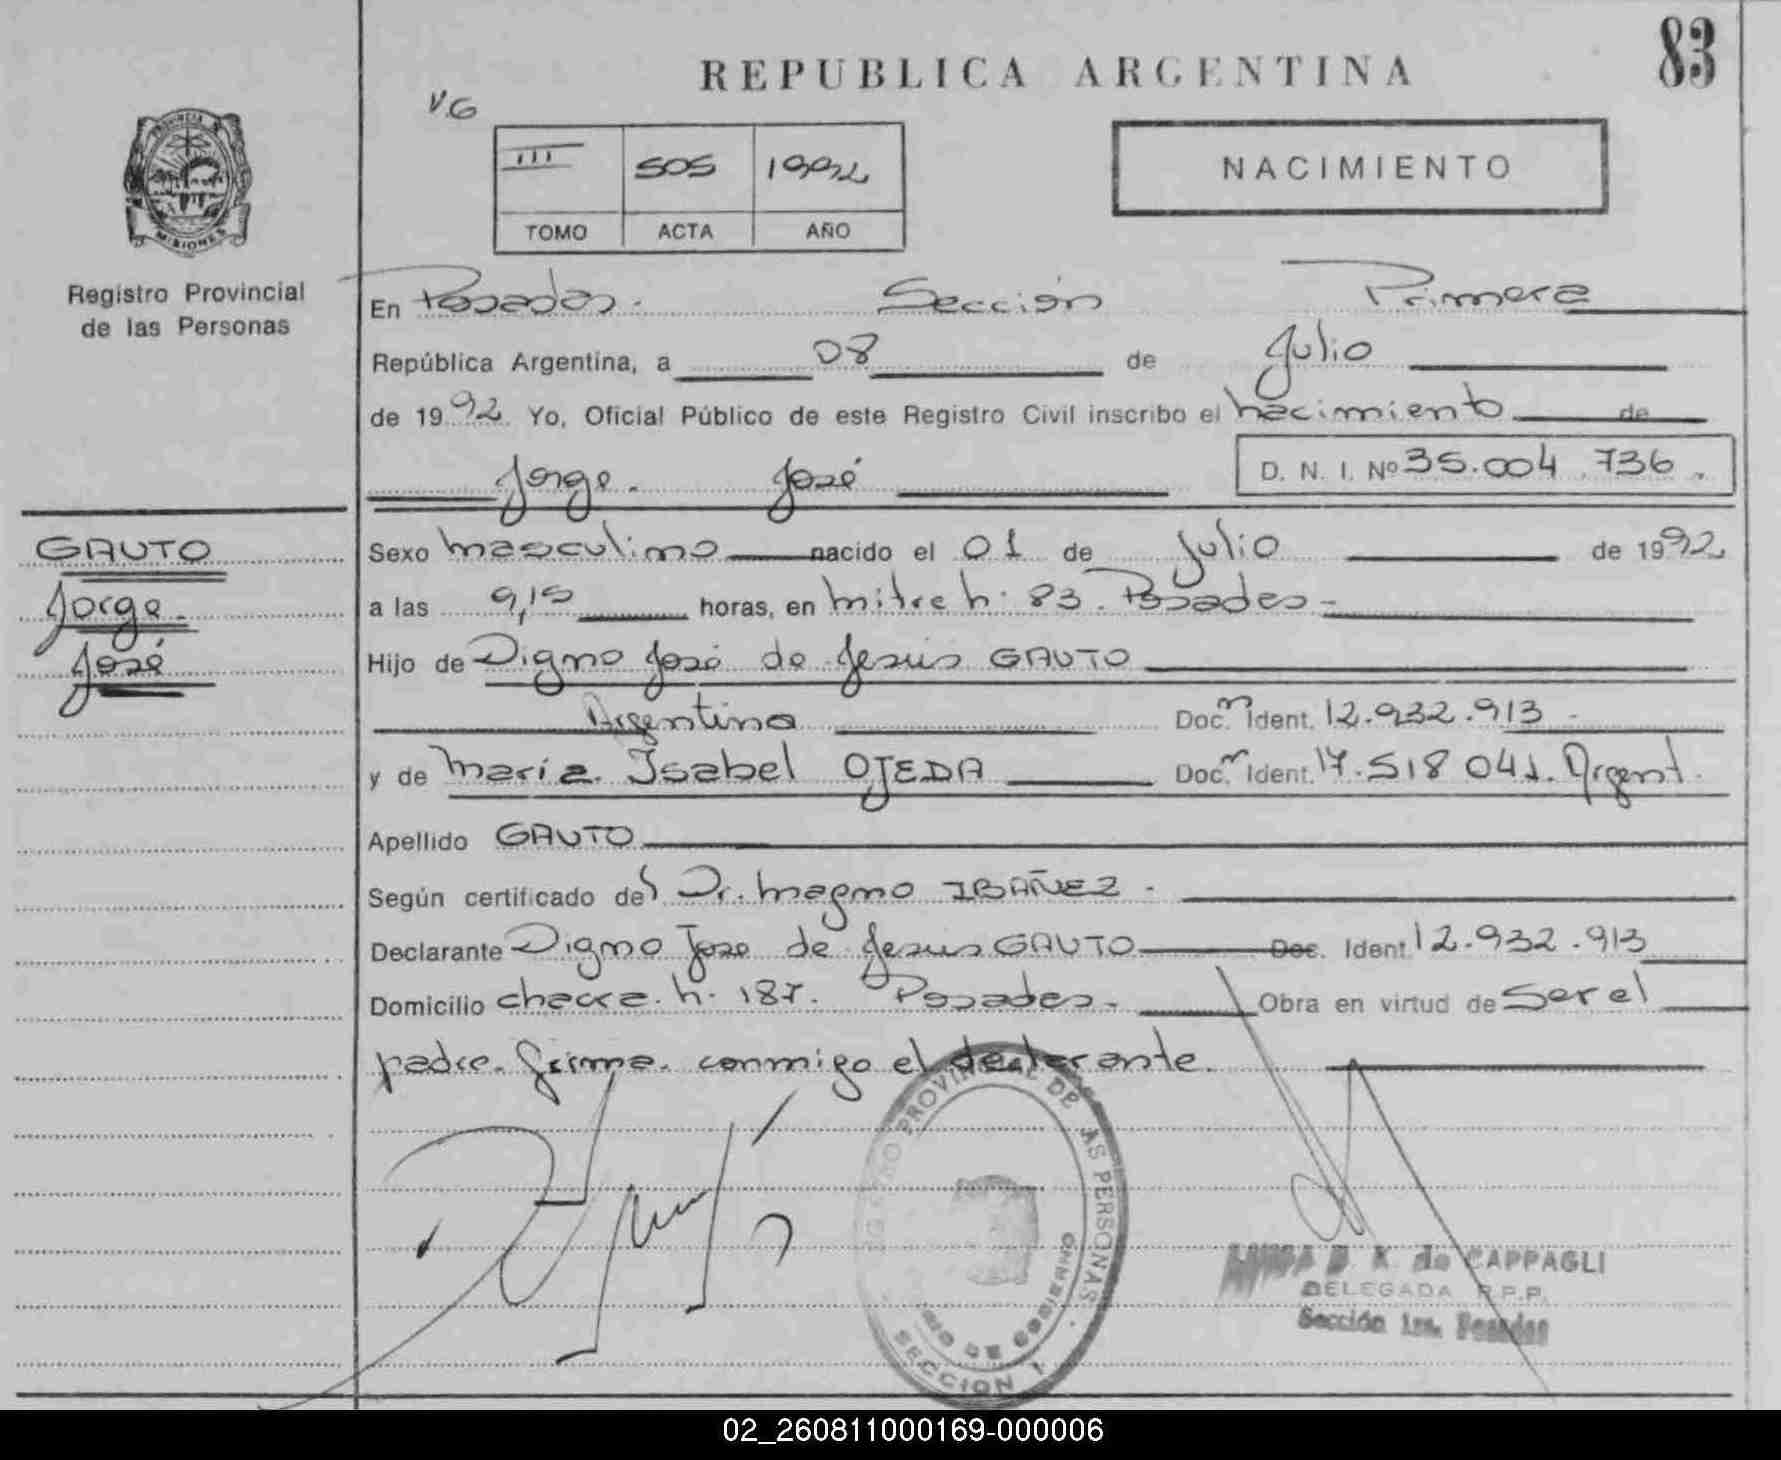 83
REPUBLICA ARGENTINA
V.G
III 505 1992
TOMO ACTA AÑO
NACIMIENTO
PROVINCIA
MISIONES
Registro Provincial
de las Personas
En Posadas. Sección Primera
República Argentina, a 08 de Julio
de 1992 Yo, Oficial Público de este Registro Civil inscribo el nacimiento de
Jorge José D. N. I. Nº 35.004.736.
GAUTO
Jorge
José
Sexo masculino nacido el 01 de Julio de 1992
a las 9,15 horas, en mitre n. 83. Posadas-
Hijo de Digno José de Jesús GAUTO
Argentina Doc. n Ident. 12.932.913-
y de maría Isabel OJEDA Doc. n Ident. 17.518 041. Argent.
Apellido GAUTO
Según certificado del Dr. magno IBAÑEZ-
Declarante Digno Jose de Jesus GAUTO Doc. Ident. 12.932.913
Domicilio chacra n. 187. Posadas- Obra en virtud de ser el
padre. firma conmigo el declarante.
REGISTRO PROVINCIAL DE LAS PERSONAS
DE GOBIERNO
SECCION 1
de CAPPAGLI
DELEGADA R.P.P.
Sección 1ra. Posadas
02_260811000169-000006